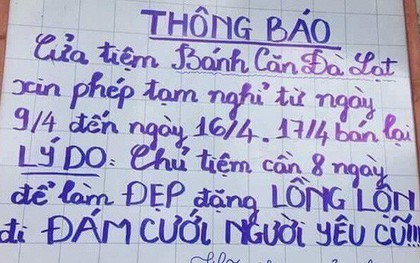 THÔNG BÁO
Cửa tiệm Bánh Căn Đà Lạt
xin phép tạm nghỉ từ ngày
9/4 đến ngày 16/4. 17/4 bán lại
LÝ DO: Chủ tiệm cần 8 ngày
để làm ĐẸP đặng LỒNG LỘN
đi ĐÁM CƯỚI NGƯỜI YÊU CŨ!!!